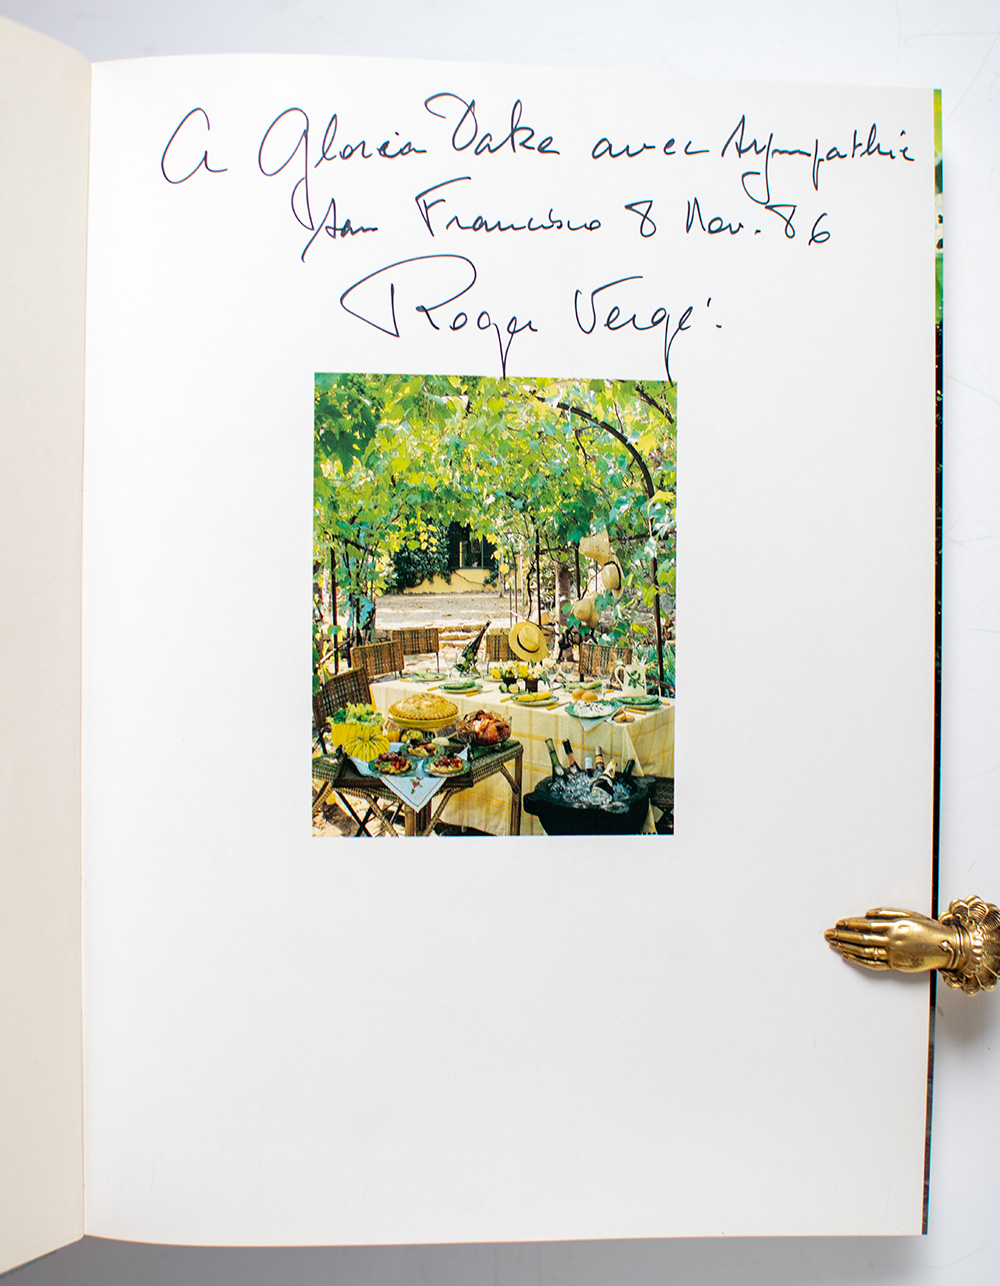 A Gloria Dake avec sympathie
San Francisco 8 Nov. 86
Roger Vergé.